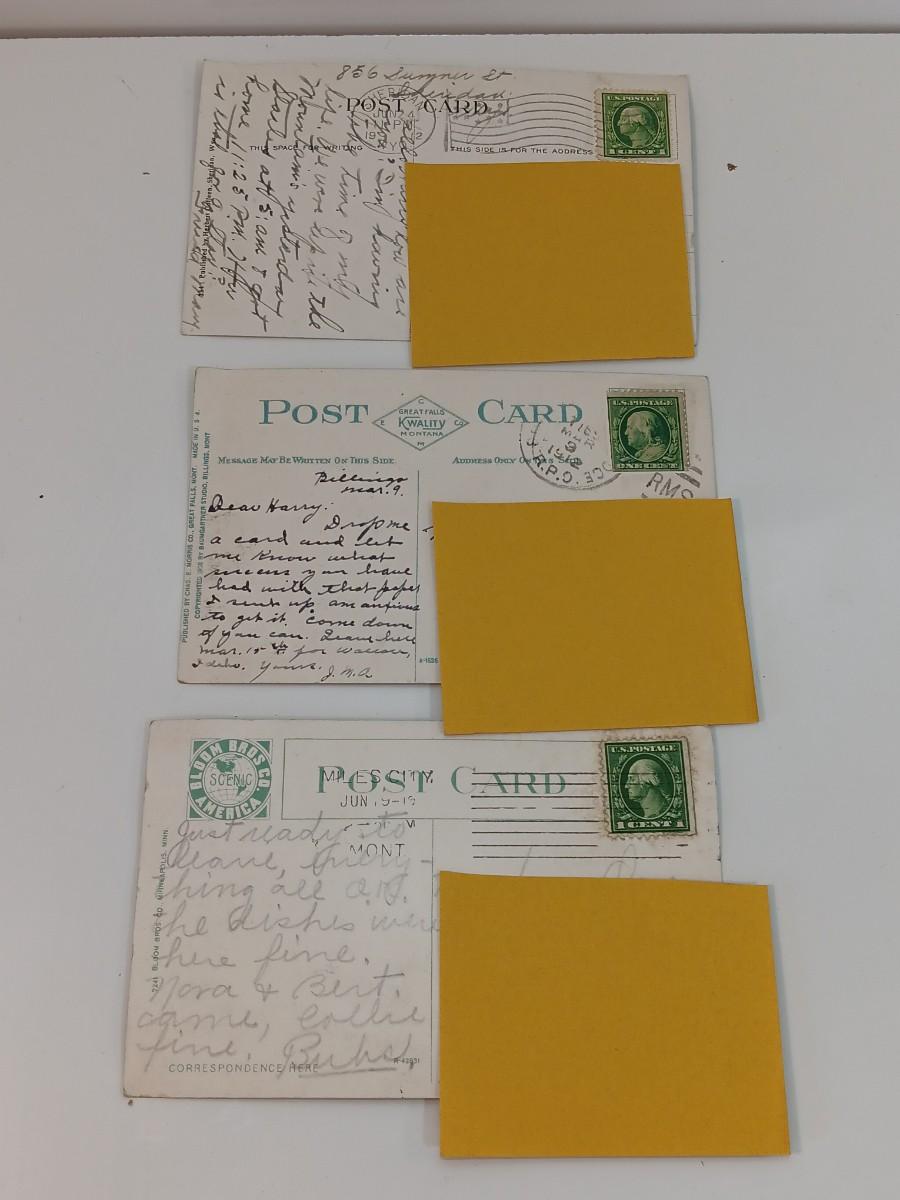 856 Sumner St
Sheridan
POST CARD
SHERIDAN
JUN 24
THIS SPACE FOR WRITING
THIS SIDE IS FOR THE ADDRESS
U.S. POSTAGE
1 CENT 1
you are
having
time of my
life. We were up in the
Mountains yesterday
Started at 5 am & got
home 1:25 P.M.
is
POST CARD
C
GREAT FALLS
E KWALITY Co
MONTANA
M
MESSAGE MAY BE WRITTEN ON THIS SIDE.
ADDRESS ONLY ON THIS SIDE
U.S. POSTAGE
ONE CENT
MAR
9
1912
R.P.O.
RMS
PUBLISHED BY CHAS. E. MORRIS CO., GREAT FALLS, MONT. MADE IN U.S.A.
COPYRIGHTED 1908 BY BAUMGARTNER STUDIO, BILLINGS, MONT
Billings
Mar. 9.
Dear Harry:
Drop me
a card and let
me know what
success you have
had with that paper
I sent up, am anxious
to get it. Come down
if you can. Leave here
Mar. 15th for Wallace,
Idaho. Yours.
J.M.A
A-1526
BLOOM BROS CO
SCENIC
AMERICA
POST CARD
MILES CITY
JUN 19-15
M
MONT
U.S. POSTAGE
1 CENT 1
7241 BLOOM BROS CO. MINNEAPOLIS, MINN.
Just ready to
leave, every-
thing all O.K.
the dishes were
here fine.
Nora & Bert.
came, Collie
fine. Bubs.
CORRESPONDENCE HERE
R-42931